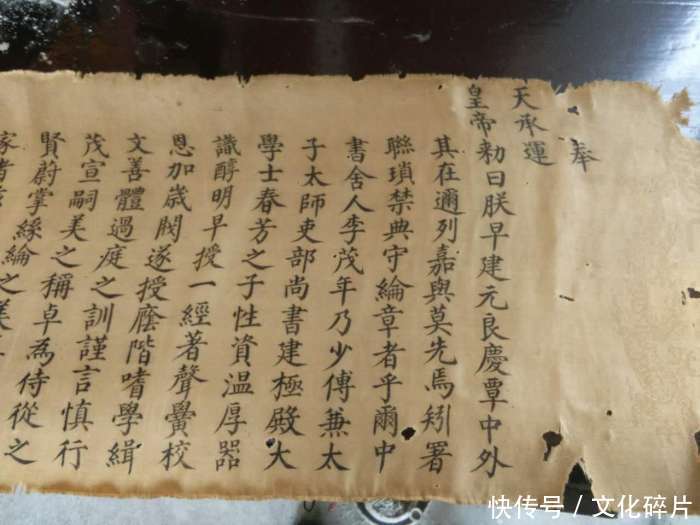 奉
天承運
皇帝勑曰朕早建元良慶覃中外
其在邇列嘉與莫先焉矧署
聯瑣禁典守綸章者乎爾中
書舍人李茂年乃少傅兼太
子太師吏部尚書建極殿大
學士春芳之子性資温厚器
識醇明早授一經著聲黌校
恩加歲閥遂授廕階嗜學緝
文善體過庭之訓謹言慎行
茂宣嗣美之稱卓為侍從之
賢蔚掌絲綸之美
家者
快传号 / 文化碎片